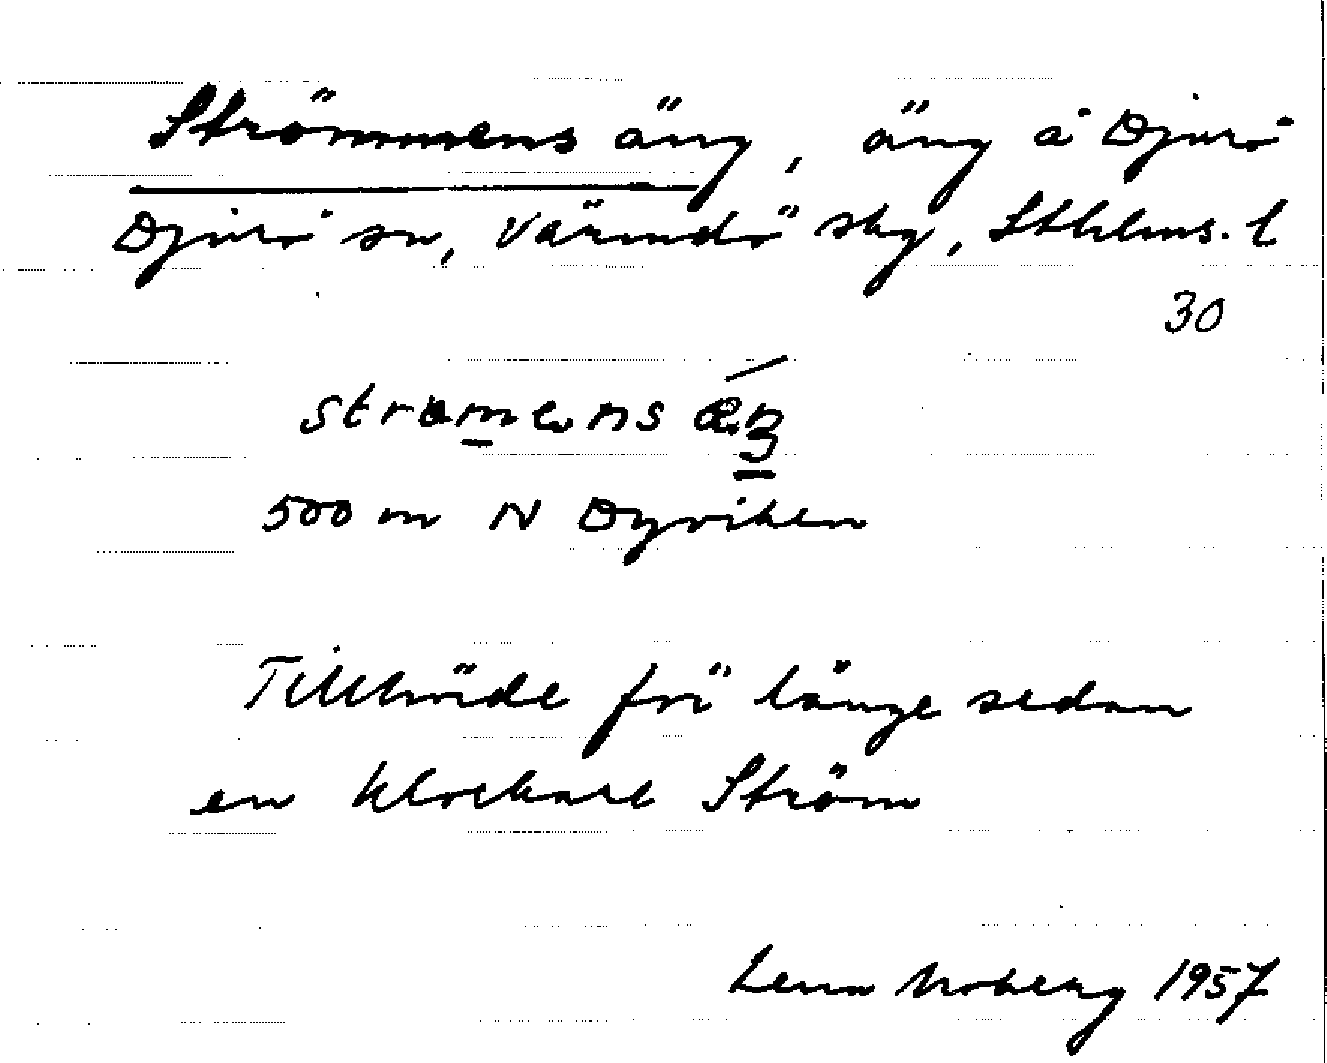 Strömmens äng, äng å Djurö
Djurö sn, Värmdö skg, Sthlms. l
30
strömens æŋ
500 m N Dyviken
Tillhörde för länge sedan
en klockare Ström
Lena Moberg 1957